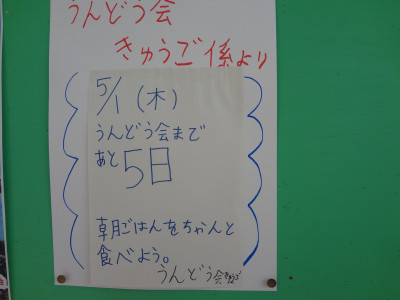 うんどう会
きゅうご係より
5/1 (木)
うんどう会まで
あと5日
朝ごはんをちゃんと
食べよう。
うんどう会きゅうご